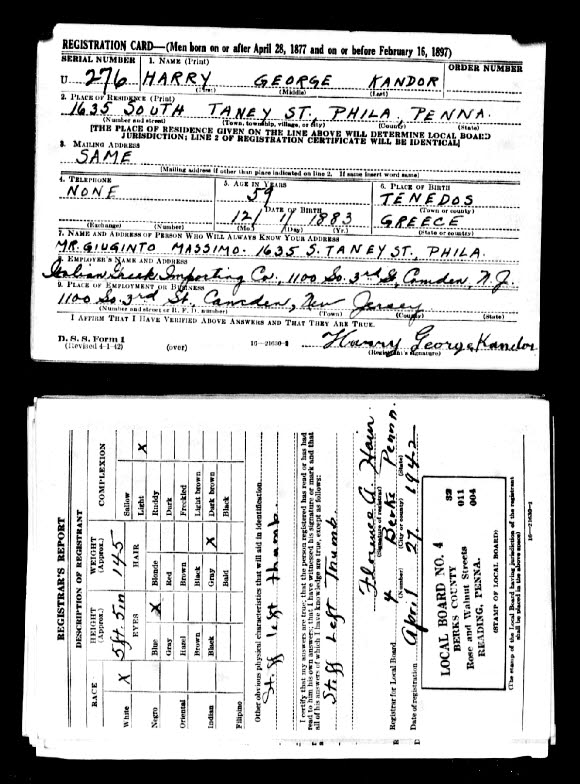 REGISTRATION CARD—(Men born on or after April 28, 1877 and on or before February 16, 1897)
SERIAL NUMBER
1. NAME (Print)
ORDER NUMBER
U 276
HARRY GEORGE KANDOR
(First) (Middle) (Last)
2. PLACE OF RESIDENCE (Print)
1635 SOUTH TANEY ST. PHILA, PENNA.
(Number and street) (Town, township, village, or city) (County) (State)
[THE PLACE OF RESIDENCE GIVEN ON THE LINE ABOVE WILL DETERMINE LOCAL BOARD
JURISDICTION; LINE 2 OF REGISTRATION CERTIFICATE WILL BE IDENTICAL]
3. MAILING ADDRESS
SAME
[Mailing address if other than place indicated on line 2. If same insert word same]
4. TELEPHONE
5. AGE IN YEARS
6. PLACE OF BIRTH
NONE
59
TENEDOS
DATE OF BIRTH
(Town or county)
12 1 1883
GREECE
(Exchange) (Number)
(Mo.) (Day) (Yr.)
(State or country)
7. NAME AND ADDRESS OF PERSON WHO WILL ALWAYS KNOW YOUR ADDRESS
MR. GIUGINTO MASSIMO. 1635 S. TANEY ST., PHILA.
8. EMPLOYER'S NAME AND ADDRESS
Italian Greek Importing Co., 1100 So. 3rd St, Camden, N.J.
9. PLACE OF EMPLOYMENT OR BUSINESS
1100 So. 3rd St., Camden, New Jersey
(Number and street or R. F. D. number) (Town) (County) (State)
I AFFIRM THAT I HAVE VERIFIED ABOVE ANSWERS AND THAT THEY ARE TRUE.
D. S. S. Form 1
(Revised 4-1-42) (over) 16—21630-1
Harry George Kandor
(Registrant's signature)
REGISTRAR'S REPORT
DESCRIPTION OF REGISTRANT
RACE
HEIGHT (Approx.)
WEIGHT (Approx.)
COMPLEXION
5 ft 5 in
145
EYES
HAIR
White X
Negro
Oriental
Indian
Filipino
Blue X
Gray
Hazel
Brown
Black
Blonde
Red
Brown
Black
Gray X
Bald
Sallow
Light X
Ruddy
Dark
Freckled
Light brown
Dark brown
Black
Other obvious physical characteristics that will aid in identification
Stiff left thumb.
I certify that my answers are true; that the person registered has read or has had
read to him his own answers; that I have witnessed his signature or mark and that
all of his answers of which I have knowledge are true, except as follows:
Stiff Left Thumb.
Florence A. Hain
(Signature of registrar)
Registrar for Local Board 4 Berks Penna.
(Number) (City or county) (State)
Date of registration April 27 1942
LOCAL BOARD NO. 4
BERKS COUNTY
Rose and Walnut Streets
READING, PENNA.
011
004
(STAMP OF LOCAL BOARD)
(The stamp of the Local Board having jurisdiction of the registrant
shall be placed in the above space)
16—21630-1